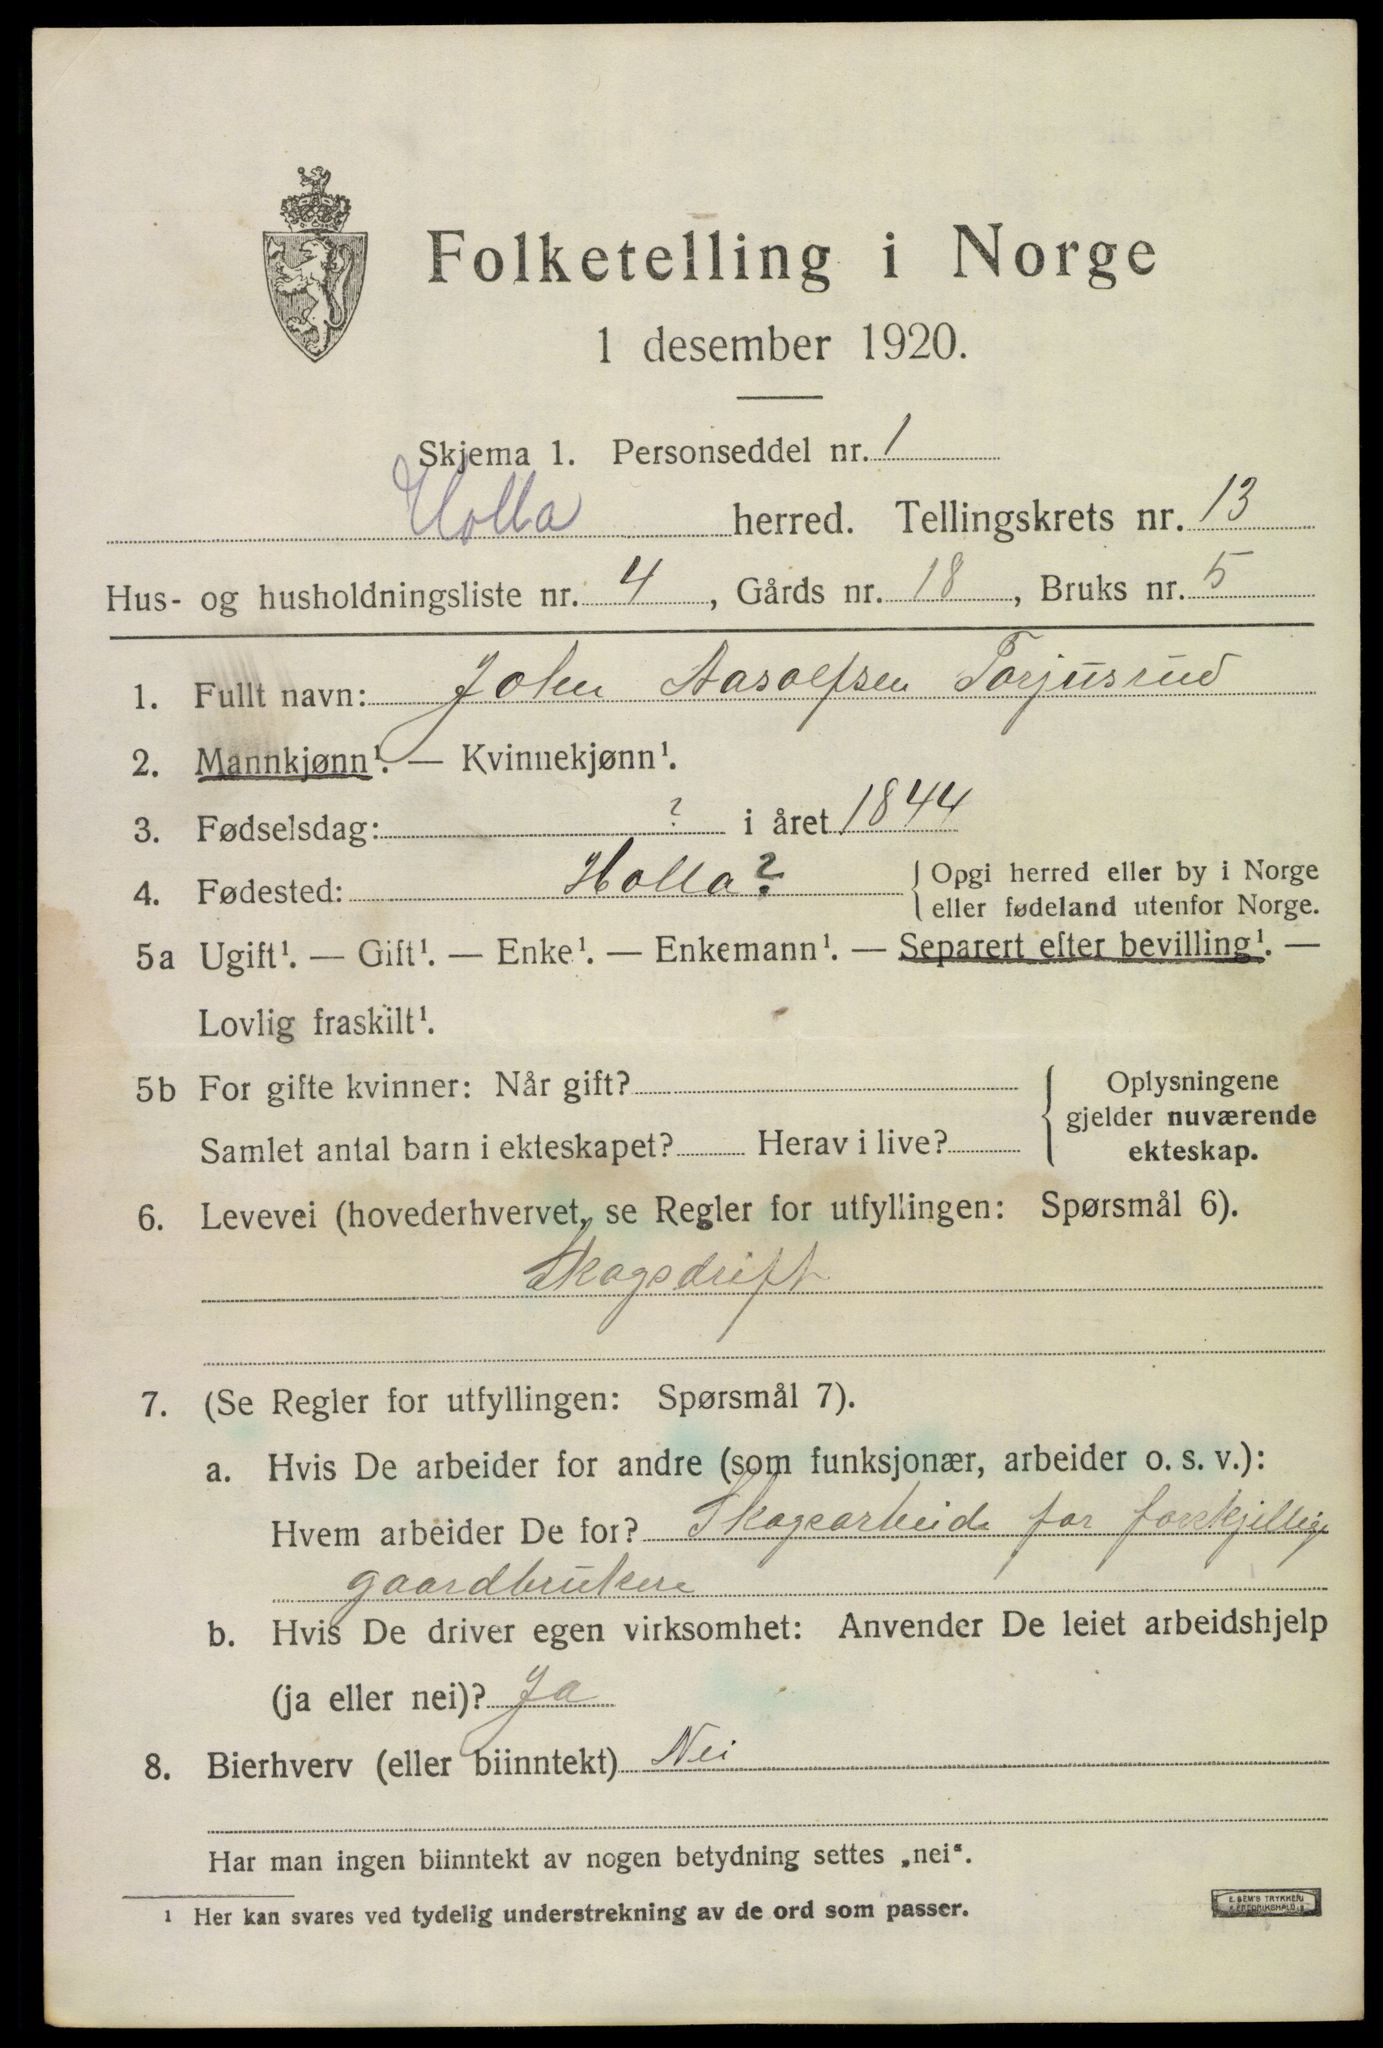 Folketelling i Norge
1 desember 1920.
Skjema 1. Personseddel nr. 1
Holla herred. Tellingskrets nr. 13
Hus- og husholdningsliste nr. 4, Gårds nr. 18, Bruks nr. 5
1. Fullt navn: John Aasolfsen Torjusrud
2. Mannkjønn¹. — Kvinnekjønn¹.
3. Fødselsdag: ? i året 1844
4. Fødested: Holla? { Opgi herred eller by i Norge
eller fødeland utenfor Norge.
5a Ugift¹. — Gift¹. — Enke¹. — Enkemann¹. — Separert efter bevilling¹. —
Lovlig fraskilt¹.
5b For gifte kvinner: Når gift? { Oplysningene
gjelder nuværende
Samlet antal barn i ekteskapet? Herav i live? ekteskap.
6. Levevei (hovederhvervet, se Regler for utfyllingen: Spørsmål 6).
Skogsdrift
7. (Se Regler for utfyllingen: Spørsmål 7).
a. Hvis De arbeider for andre (som funksjonær, arbeider o. s. v.):
Hvem arbeider De for? Skogsarbeide for forskjellige
gaardbrukere
b. Hvis De driver egen virksomhet: Anvender De leiet arbeidshjelp
(ja eller nei)? Ja
8. Bierhverv (eller biinntekt) Nei
Har man ingen biinntekt av nogen betydning settes „nei“.
¹ Her kan svares ved tydelig understrekning av de ord som passer.
E. SEM'S TRYKKERI
FREDRIKSHALD